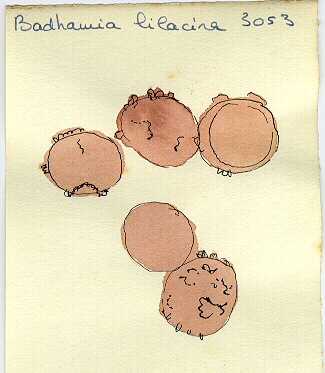 Badhamia lilacina 3053